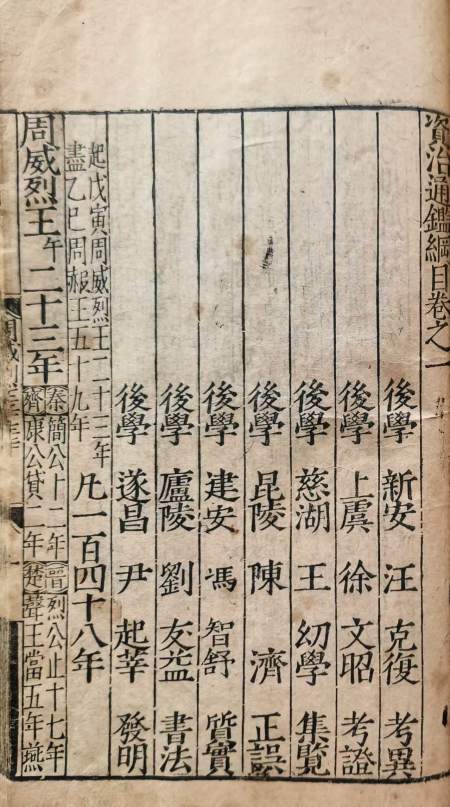 資治通鑑綱目卷之一
後學 新安 汪 克復 考異
後學 上虞 徐 文昭 考證
後學 慈湖 王 幼學 集覽
後學 昆陵 陳 濟 正誤
後學 建安 馮 智舒 質實
後學 廬陵 劉 友益 書法
後學 遂昌 尹 起莘 發明
起戊寅周威烈王二十三年
盡乙巳周赧王五十九年
凡一百四十八年
周威烈王午二十三年
秦簡公十二年 晉烈公止十七年
齊康公貸二年 楚聲王當五年燕